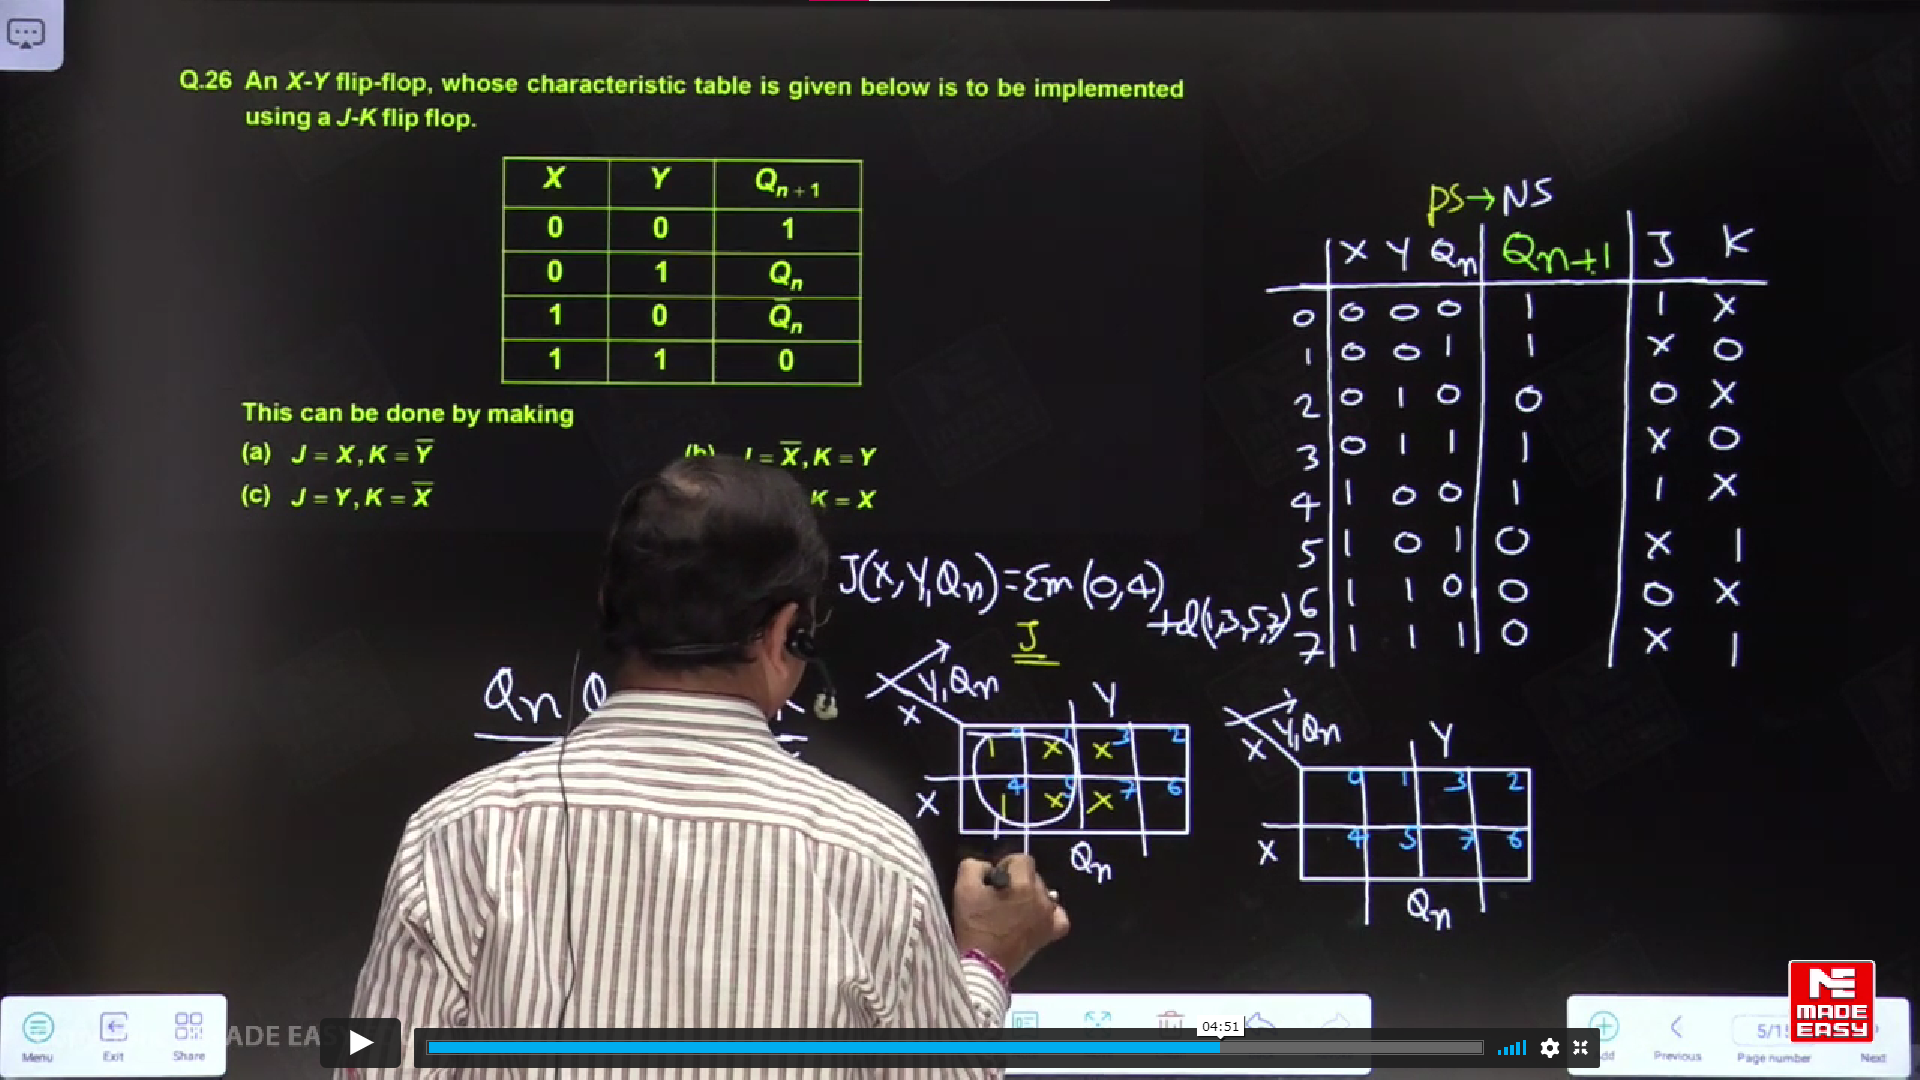 Q.26 An X-Y flip-flop, whose characteristic table is given below is to be implemented
using a J-K flip flop.
X Y Qn+1
0 0 1
0 1 Qn
1 0 Q̅n
1 1 0
This can be done by making
(a) J = X, K = Y̅
(b) J = X̅, K = Y
(c) J = Y, K = X̅
K = X
PS→NS
X Y Qn Qn+1 J K
0 0 0 0 1 1 X
1 0 0 1 1 X 0
2 0 1 0 0 0 X
3 0 1 1 1 X 0
4 1 0 0 1 1 X
5 1 0 1 0 X 1
6 1 1 0 0 0 X
7 1 1 1 0 X 1
J(X,Y,Qn)=Σm(0,4)
+d(1,3,5,7)
J
Qn
Y,Qn
X
Y
1 0 X 1 X 3 2
X
1 4 X 5 X 7 6
Qn
Y,Qn
X
Y
0 1 3 2
X
4 5 7 6
Qn
ADE EAS
04:51
Menu
Exit
Share
5/1
Previous
Page number
Next
MADE
EASY